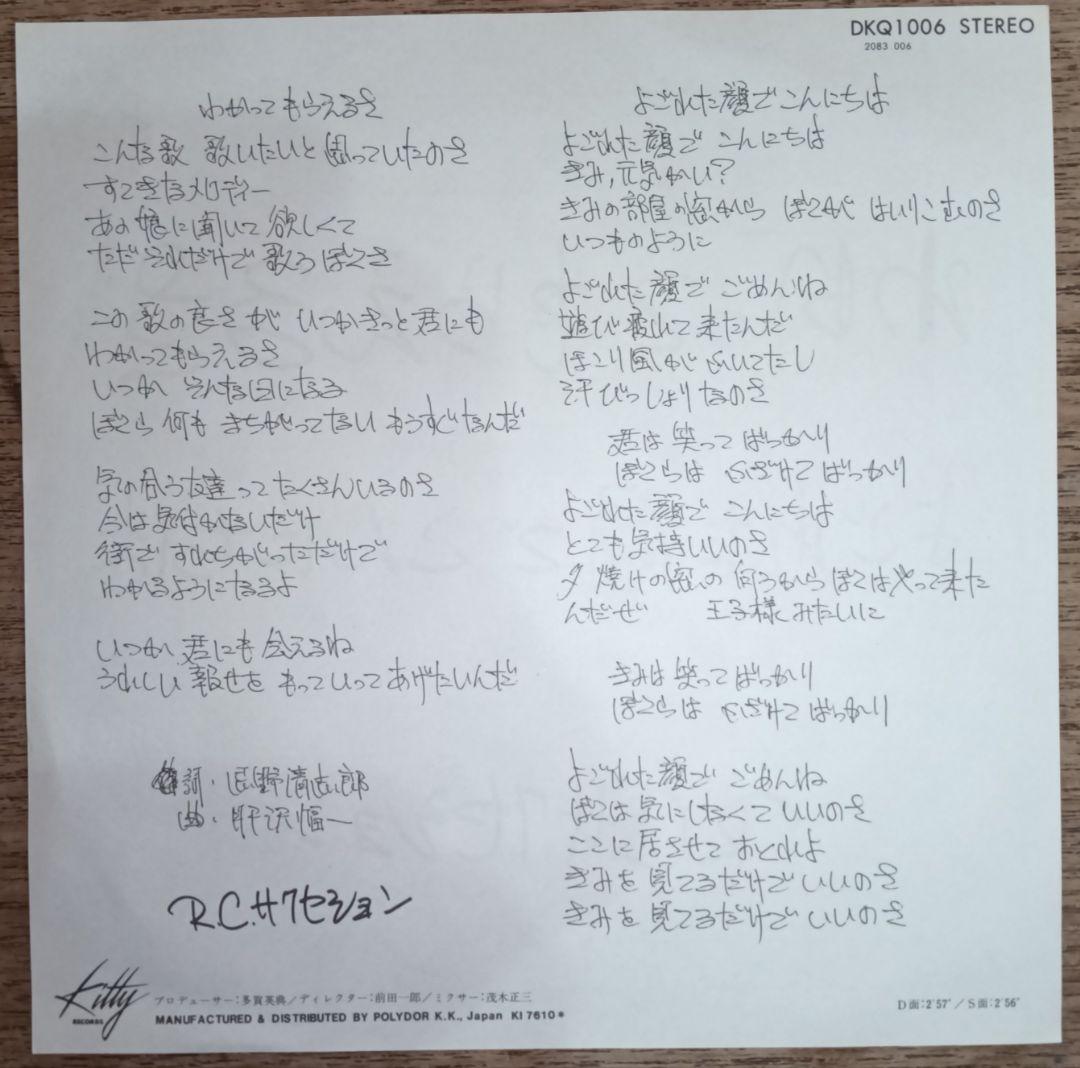 DKQ1006 STEREO
2083 006
わかってもらえるさ
こんな歌 歌いたいと思っていたのさ
すてきなメロディー
あの娘に聞いて欲しくて
ただそれだけで歌うぼくさ
この歌の良さが いつかきっと君にも
わかってもらえるさ
いつか そんな日になる
ぼくら何も まちがってない もうすぐなんだ
気の合う友達ってたくさんいるのさ
今は気付かないだけ
街で すれちがっただけで
わかるようになるよ
いつか 君にも会えるね
うれしい報せを もっていってあげたいんだ
作詞・肝沢幅一
曲・肝沢幅一
R.C.サクセション
よごれた顔でこんにちは
よごれた顔で こんにちは
きみ,元気かい?
きみの部屋の窓から ぼくが はいりこむのさ
いつものように
よごれた顔で ごめんね
遊び疲れて来たんだ
ほこり風がふいてたし
汗びっしょりなのさ
君は笑ってばっかり
ぼくらは ふざけてばっかり
よごれた顔で こんにちは
とても気持いいのさ
夕焼けの窓の向うから ぼくはやって来た
んだぜ 王子様みたいに
きみは笑ってばっかり
ぼくらは ふざけてばっかり
よごれた顔で ごめんね
ぼくは気にしなくていいのさ
ここに居させておくれよ
きみを見てるだけでいいのさ
きみを見てるだけでいいのさ
Kitty
RECORDS
プロデューサー:多賀英典/ディレクター:前田一郎/ミクサー:茂木正三
MANUFACTURED & DISTRIBUTED BY POLYDOR K.K., Japan KI 7610*
D面:2'57"/S面:2'56"